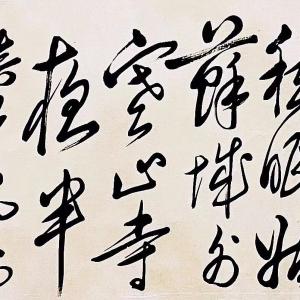 愁眠姑
蘇城外
寒山寺
夜半